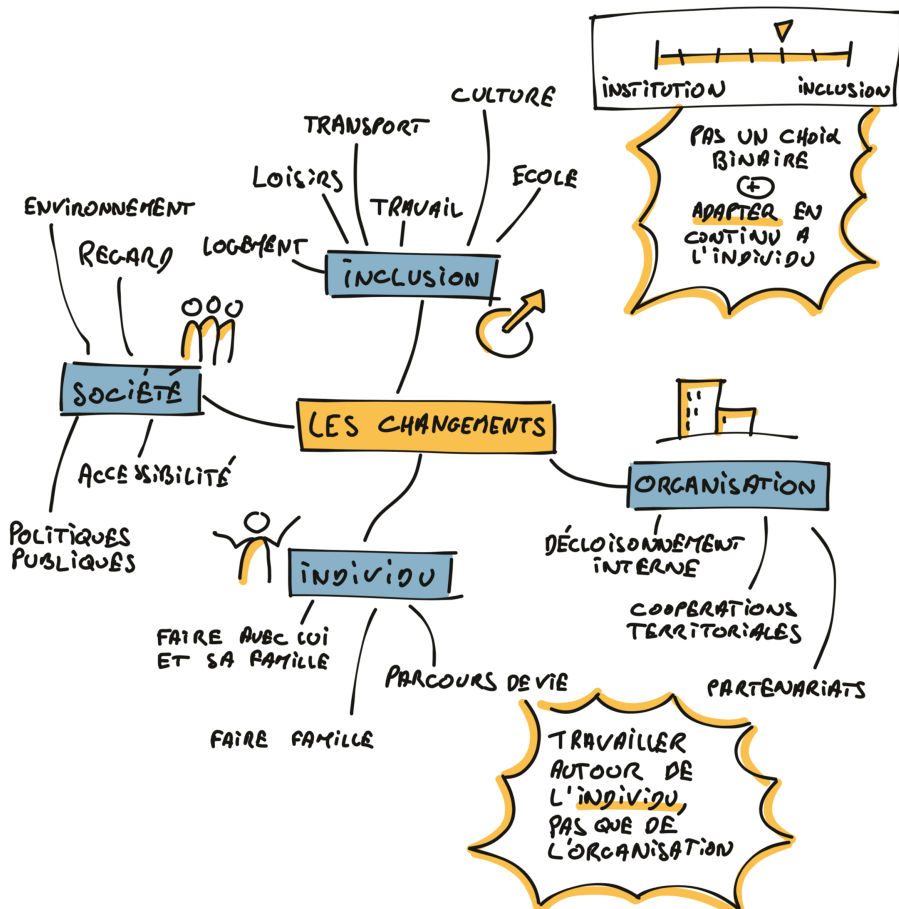 INSTITUTION
INCLUSION
PAS UN CHOIX
BINAIRE
+
ADAPTER EN
CONTINU A
L'INDIVIDU
CULTURE
TRANSPORT
LOISIRS
ECOLE
TRAVAIL
LOGEMENT
INCLUSION
ENVIRONNEMENT
REGARD
SOCIÉTÉ
ACCESSIBILITÉ
POLITIQUES
PUBLIQUES
LES CHANGEMENTS
ORGANISATION
DÉCLOISONNEMENT
INTERNE
COOPERATIONS
TERRITORIALES
PARTENARIATS
INDIVIDU
FAIRE AVEC LUI
ET SA FAMILLE
PARCOURS DE VIE
FAIRE FAMILLE
TRAVAILLER
AUTOUR DE
L'INDIVIDU,
PAS QUE DE
L'ORGANISATION